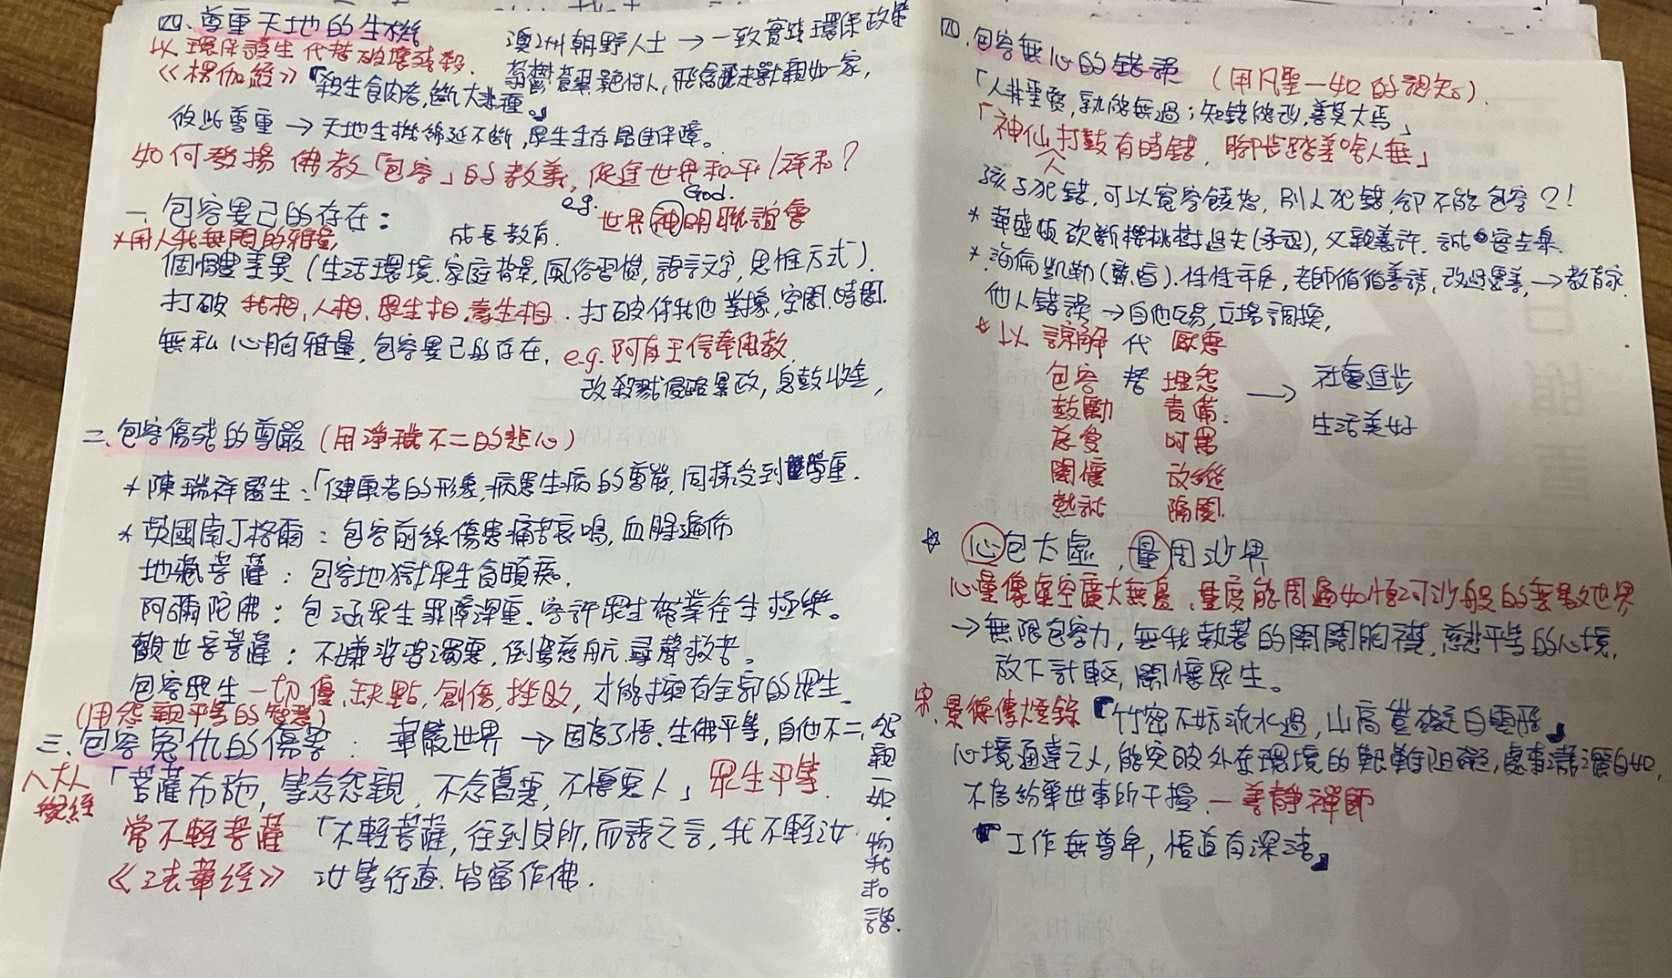 四、尊重天地的生機
以環保護生代替破壞殘殺.
澳洲朝野人士→一致實踐環保政策
《楞伽經》「殺生食肉者,斷大悲種。」
蓊鬱蒼翠艷怡人,飛禽走獸親如一家,
彼此尊重→天地生機綿延不斷,眾生生存居住保障。
如何發揚佛教「包容」的教義,促進世界和平/祥和?
一、包容異己的存在:
eg. 世界神明聯誼會
God.
*用人我無間的雅量,
成長教育.
個體差異(生活環境.家庭背景,風俗習慣,語言文字,思惟方式).
打破我相,人相.眾生相.壽生相.打破你我他對象,空間.時間.
無私心胸雅量,包容異己的存在. e.g.阿育王信奉佛教,
改殺戮侵略暴政,息鼓收金,
二、包容傷殘的尊嚴(用淨穢不二的悲心)
*陳瑞祥醫生:「健康者的形象,病患生病的尊嚴,同樣受到尊重.
*英國南丁格爾:包容前線傷患痛苦哀鳴,血腥遍佈
地藏菩薩:包容地獄眾生貪瞋癡.
阿彌陀佛:包涵眾生罪障深重.容許眾生帶業往生極樂。
觀世音菩薩:不嫌娑婆濁惡,倒駕慈航尋聲救苦。
包容眾生一切優,缺點,創傷,挫敗,才能擁有全部的眾生。
(用怨親平等的智慧)
三、包容冤仇的傷害:華嚴世界→因為了悟.生佛平等,自他不二,怨親一如.物我和諧.
八大人覺經「菩薩布施,等念怨親,不念舊惡,不憎惡人」眾生平等.
常不輕菩薩「不輕菩薩,往到其所,而語之言,我不輕汝
《法華經》汝等行道.皆當作佛.
四、包容無心的錯誤(用凡聖一如的認知).
「人非聖賢,孰能無過;知錯能改,善莫大焉」
「神仙打鼓有時錯,腳步踏差啥人無」
孩子犯錯,可以寬容饒恕,別人犯錯,卻不能包容?!
*華盛頓砍斷櫻桃樹過失(承認),父親嘉許.誠實全身
*海倫凱勒(聾盲).性性乖戾,老師循循善誘,改過遷善,→教育家.
他人錯誤→自他互易,立場調換,
*以諒解代厭惡
包容替埋怨
鼓勵 責備.
慈愛 呵罵
關懷 放縱
熱誠 隔閡
→社會進步
生活美好
☆心包太虛,量周沙界
心量像虛空廣大無邊,量度能周遍如恆河沙般的無數世界
→無限包容力,無我執著的開闊胸襟,慈悲平等的心境,
放下計較,關懷眾生。
宋.景德傳燈錄『竹密不妨流水過,山高豈礙白雲飛』
心境通達之人,能突破外在環境的艱難阻礙,處事瀟灑自如,
不為紛華世事所干擾—善靜禪師
『工作無尊卑,悟道有深淺』